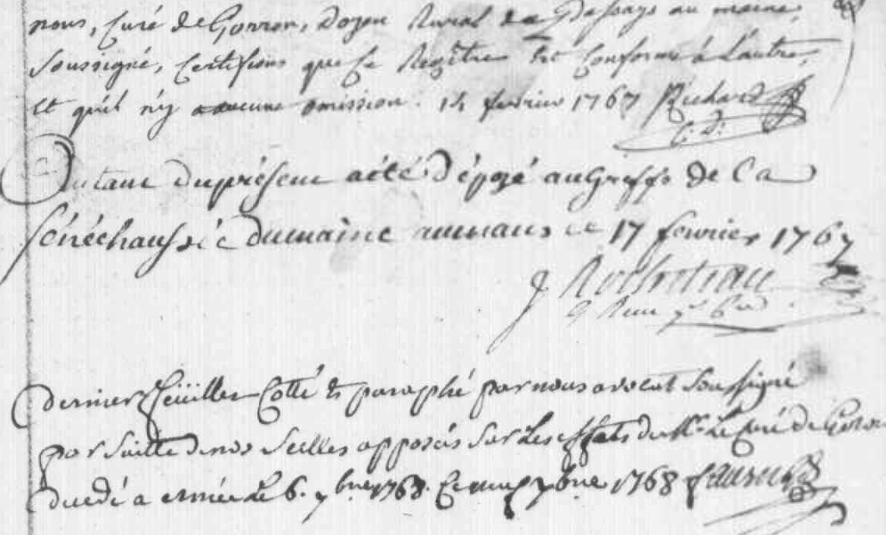 nous, Curé de Gorron, Doyen Rural de Passays au maine,
Soussigné, Certifions que Ce Registre Est Conforme à L'autre,
Et qu'il n'y a aucune omission. 14 fevrier 1767 Richard
C. D.
Autant du présent a été déposé au Greffe de La
sénéchaussée du maine au mans ce 17 fevrier 1767
dernier feüillet Cotté & paraphé par nous avocat Soussigné
par Suitte de nos Scelles apposés Sur Les effets du Mr. Le Curé de Goron
decedé a Le 6. 7bre 1768. Ce neuf 7bre 1768